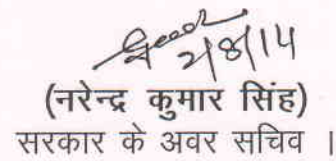 2/8/14
(नरेन्द्र कुमार सिंह)
सरकार के अवर सचिव ।